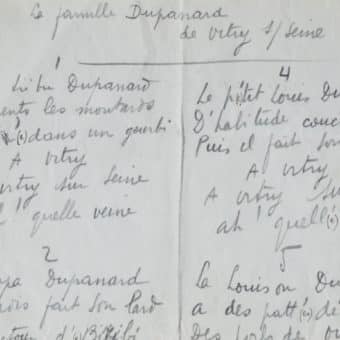 La famille Dupanard
de Vitry s/ Seine
1
tribu Dupanard
les moutards
dans un gourbi
A Vitry
Vitry sur Seine
! quelle veine
2
Dupanard
fait son lard
4
Le p'tit Louis Du
D'habitude couc
Puis il fait son
A Vitry
A Vitry su
ah ! quell(e)
5
La Louison Du
a des patt(e) dé